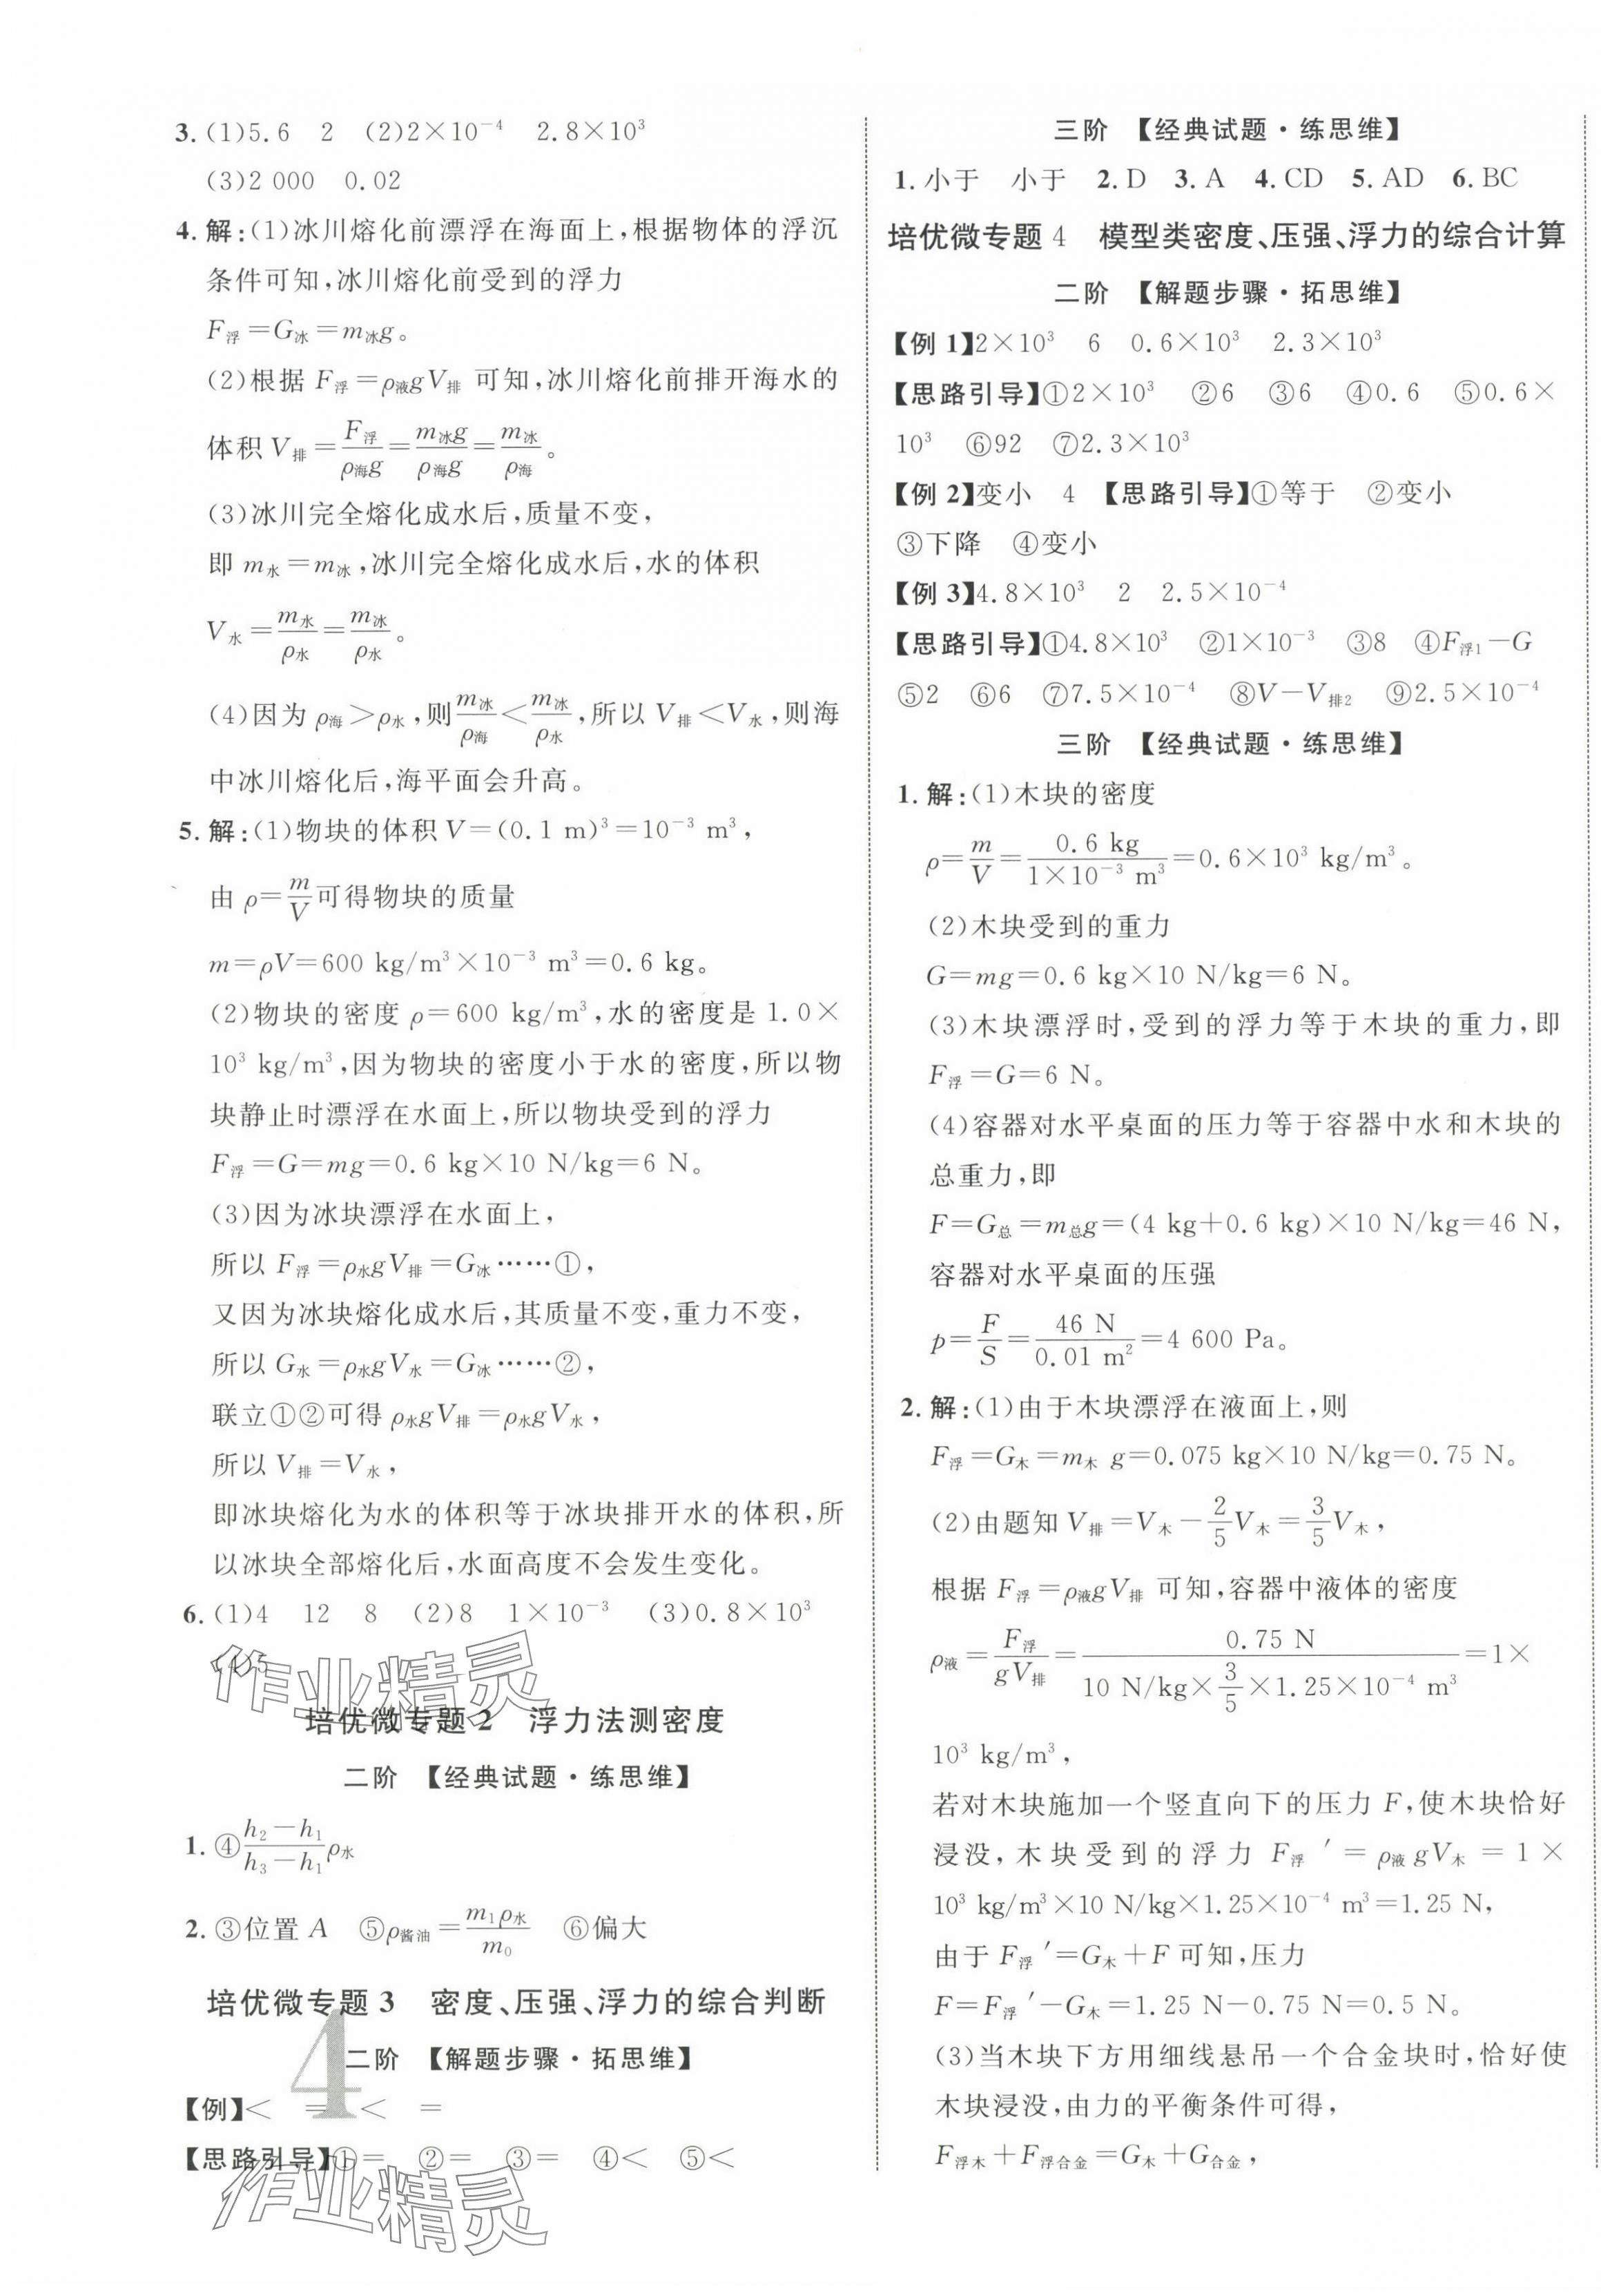 3. (1)5.6　2　(2)2×10⁻⁴　2.8×10³
(3)2 000　0.02
4. 解:(1)冰川熔化前漂浮在海面上,根据物体的浮沉
条件可知,冰川熔化前受到的浮力
F浮=G冰=m冰g。
(2)根据 F浮=ρ液gV排 可知,冰川熔化前排开海水的
体积 V排=F浮/ρ海g=m冰g/ρ海g=m冰/ρ海。
(3)冰川完全熔化成水后,质量不变,
即 m水=m冰,冰川完全熔化成水后,水的体积
V水=m水/ρ水=m冰/ρ水。
(4)因为 ρ海>ρ水,则m冰/ρ海<m冰/ρ水,所以 V排<V水,则海
中冰川熔化后,海平面会升高。
5. 解:(1)物块的体积 V=(0.1 m)³=10⁻³ m³,
由 ρ=m/V可得物块的质量
m=ρV=600 kg/m³×10⁻³ m³=0.6 kg。
(2)物块的密度 ρ=600 kg/m³,水的密度是 1.0×
10³ kg/m³,因为物块的密度小于水的密度,所以物
块静止时漂浮在水面上,所以物块受到的浮力
F浮=G=mg=0.6 kg×10 N/kg=6 N。
(3)因为冰块漂浮在水面上,
所以 F浮=ρ水gV排=G冰……①,
又因为冰块熔化成水后,其质量不变,重力不变,
所以 G水=ρ水gV水=G冰……②,
联立①②可得 ρ水gV排=ρ水gV水,
所以 V排=V水,
即冰块熔化为水的体积等于冰块排开水的体积,所
以冰块全部熔化后,水面高度不会发生变化。
6. (1)4　12　8　(2)8　1×10⁻³　(3)0.8×10³
(4)5
作业精灵
培优微专题 2　浮力法测密度
二阶　【经典试题·练思维】
1. ④(h₂−h₁)/(h₃−h₁)ρ水
2. ③位置 A　⑤ρ酱油=m₁ρ水/m₀　⑥偏大
培优微专题 3　密度、压强、浮力的综合判断
二阶　【解题步骤·拓思维】
【例】<　=　<　=
【思路引导】①=　②=　③=　④<　⑤<
4
作业精灵
三阶　【经典试题·练思维】
1. 小于　小于　2. D　3. A　4. CD　5. AD　6. BC
培优微专题 4　模型类密度、压强、浮力的综合计算
二阶　【解题步骤·拓思维】
【例 1】2×10³　6　0.6×10³　2.3×10³
【思路引导】①2×10³　②6　③6　④0.6　⑤0.6×
10³　⑥92　⑦2.3×10³
【例 2】变小　4　【思路引导】①等于　②变小
③下降　④变小
【例 3】4.8×10³　2　2.5×10⁻⁴
【思路引导】①4.8×10³　②1×10⁻³　③8　④F浮1−G
⑤2　⑥6　⑦7.5×10⁻⁴　⑧V−V排2　⑨2.5×10⁻⁴
三阶　【经典试题·练思维】
1. 解:(1)木块的密度
ρ=m/V=0.6 kg/(1×10⁻³ m³)=0.6×10³ kg/m³。
(2)木块受到的重力
G=mg=0.6 kg×10 N/kg=6 N。
(3)木块漂浮时,受到的浮力等于木块的重力,即
F浮=G=6 N。
(4)容器对水平桌面的压力等于容器中水和木块的
总重力,即
F=G总=m总g=(4 kg+0.6 kg)×10 N/kg=46 N,
容器对水平桌面的压强
p=F/S=46 N/0.01 m²=4 600 Pa。
2. 解:(1)由于木块漂浮在液面上,则
F浮=G木=m木 g=0.075 kg×10 N/kg=0.75 N。
(2)由题知 V排=V木−2/5V木=3/5V木,
根据 F浮=ρ液gV排 可知,容器中液体的密度
ρ液=F浮/gV排=0.75 N/(10 N/kg×3/5×1.25×10⁻⁴ m³)=1×
10³ kg/m³,
若对木块施加一个竖直向下的压力 F,使木块恰好
浸没,木块受到的浮力 F浮′=ρ液gV木=1×
10³ kg/m³×10 N/kg×1.25×10⁻⁴ m³=1.25 N,
由于 F浮′=G木+F 可知,压力
F=F浮′−G木=1.25 N−0.75 N=0.5 N。
(3)当木块下方用细线悬吊一个合金块时,恰好使
木块浸没,由力的平衡条件可得,
F浮木+F浮合金=G木+G合金,